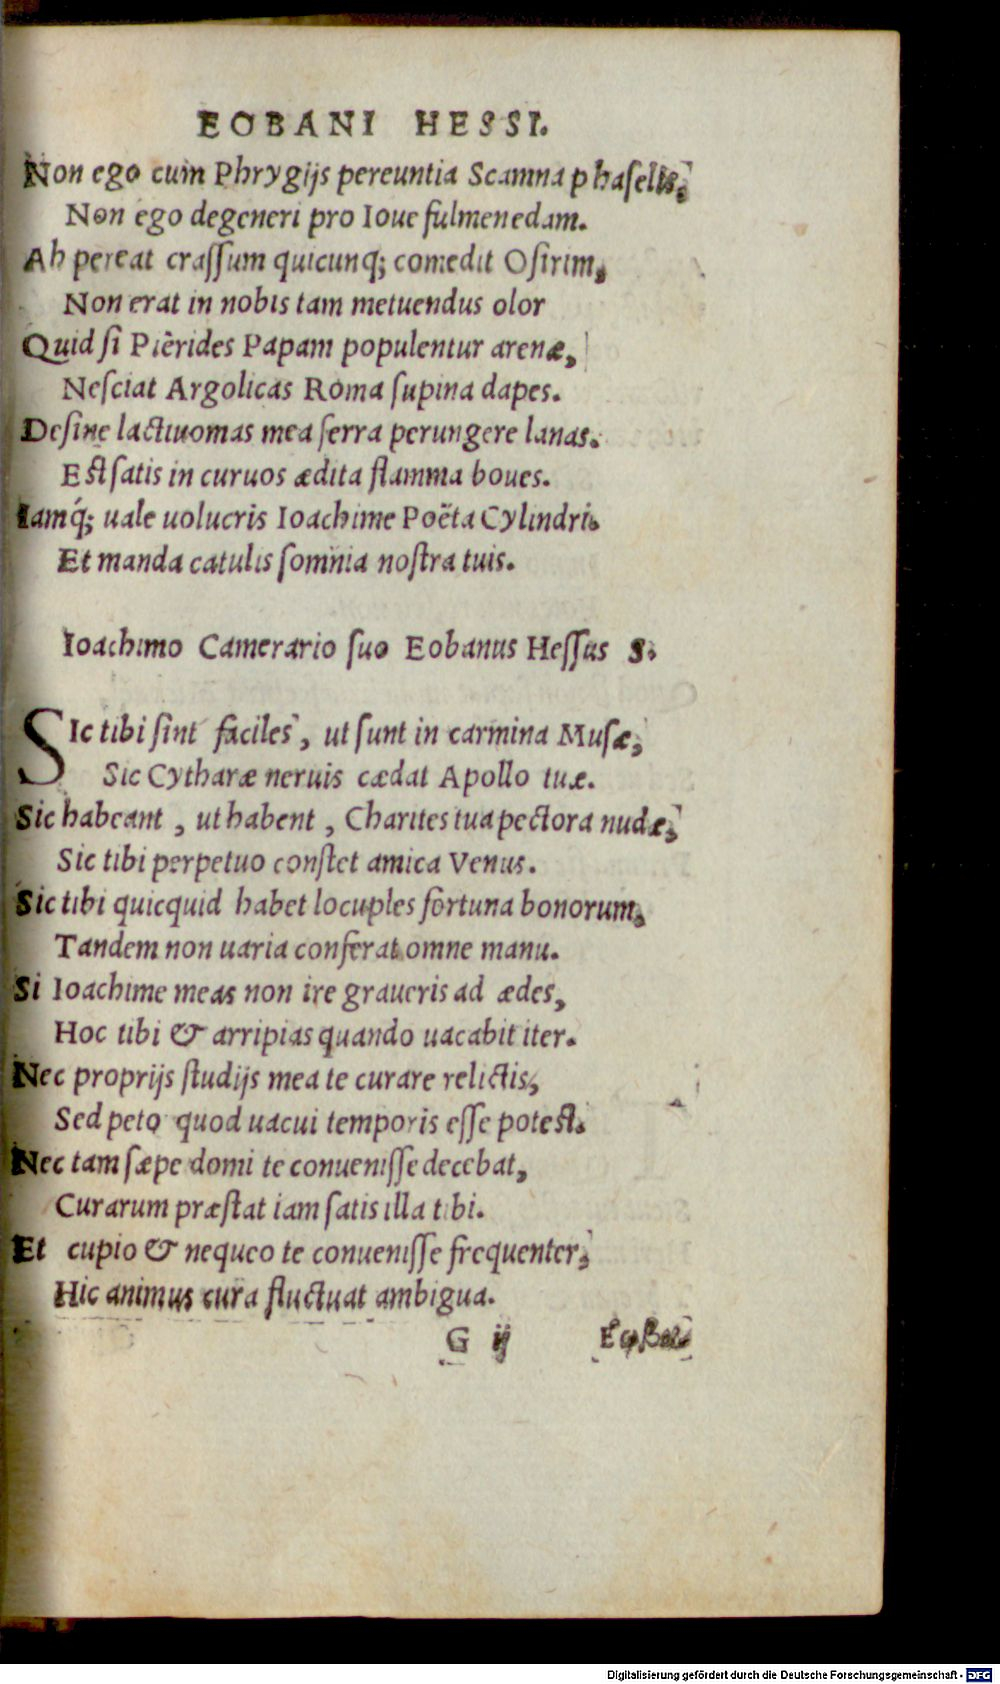 EOBANI HESSI.
Non ego cum Phrygijs pereuntia Scamna phaselis,
Non ego degeneri pro Ioue fulmen edam.
Ah pereat crassum quicunq; comedit Osirim,
Non erat in nobis tam metuendus olor
Quid si Piërides Papam populentur arenæ,
Nesciat Argolicas Roma supina dapes.
Desine lactiuomas mea serra perungere lanas.
Est satis in curuos ædita flamma boues.
Iamq́; uale uolucris Ioachime Poëta Cylindri.
Et manda catulis somnia nostra tuis.
Ioachimo Camerario suo Eobanus Hessus S.
SIc tibi sint faciles, ut sunt in carmina Musæ,
Sic Cytharæ neruis cædat Apollo tuæ.
Sic habeant, ut habent, Charites tua pectora nudæ,
Sic tibi perpetuo constet amica Venus.
Sic tibi quicquid habet locuples fortuna bonorum,
Tandem non uaria conferat omne manu.
Si Ioachime meas non ire graueris ad ædes,
Hoc tibi & arripias quando uacabit iter.
Nec proprijs studijs mea te curare relictis,
Sed peto quod uacui temporis esse potest.
Nec tam sæpe domi te conuenisse decebat,
Curarum præstat iam satis illa tibi.
Et cupio & nequeo te conuenisse frequenter,
Hic animus cura fluctuat ambigua.
G ij
Digitalisierung gefördert durch die Deutsche Forschungsgemeinschaft - DFG